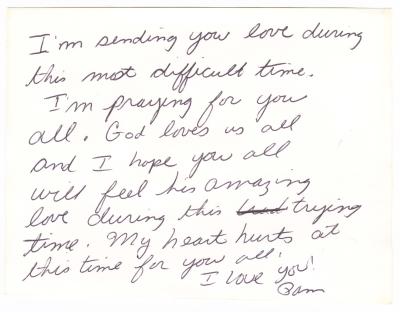 I'm sending you love during
this most difficult time.
I'm praying for you
all. God loves us all
and I hope you all
will feel his amazing
love during this trying
time. My heart hurts at
this time for you all!
I love you!
Pam